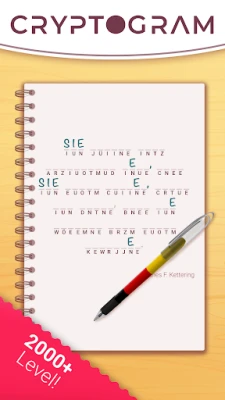 CRYPTOGRAM
SIE
IUN JUIINE INTZ
E
ARZIUOTMUD INUE, CNEE
SIE E,
IUN EUOTM CUIINE CRTUE
E
IUN DNTNE, BNEE IUN
WÖEEMNE BRZM EUOTM
E
KEWRJJNE.
les F. Kettering
2000+
Level!